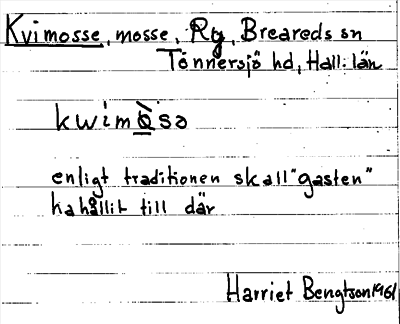 Kvimosse, mosse, Rg, Breareds sn
Tönnersjö hd, Hall. län
kwimòsə
enligt traditionen skall "gasten"
ha hållit till där
Harriet Bengtson 1961